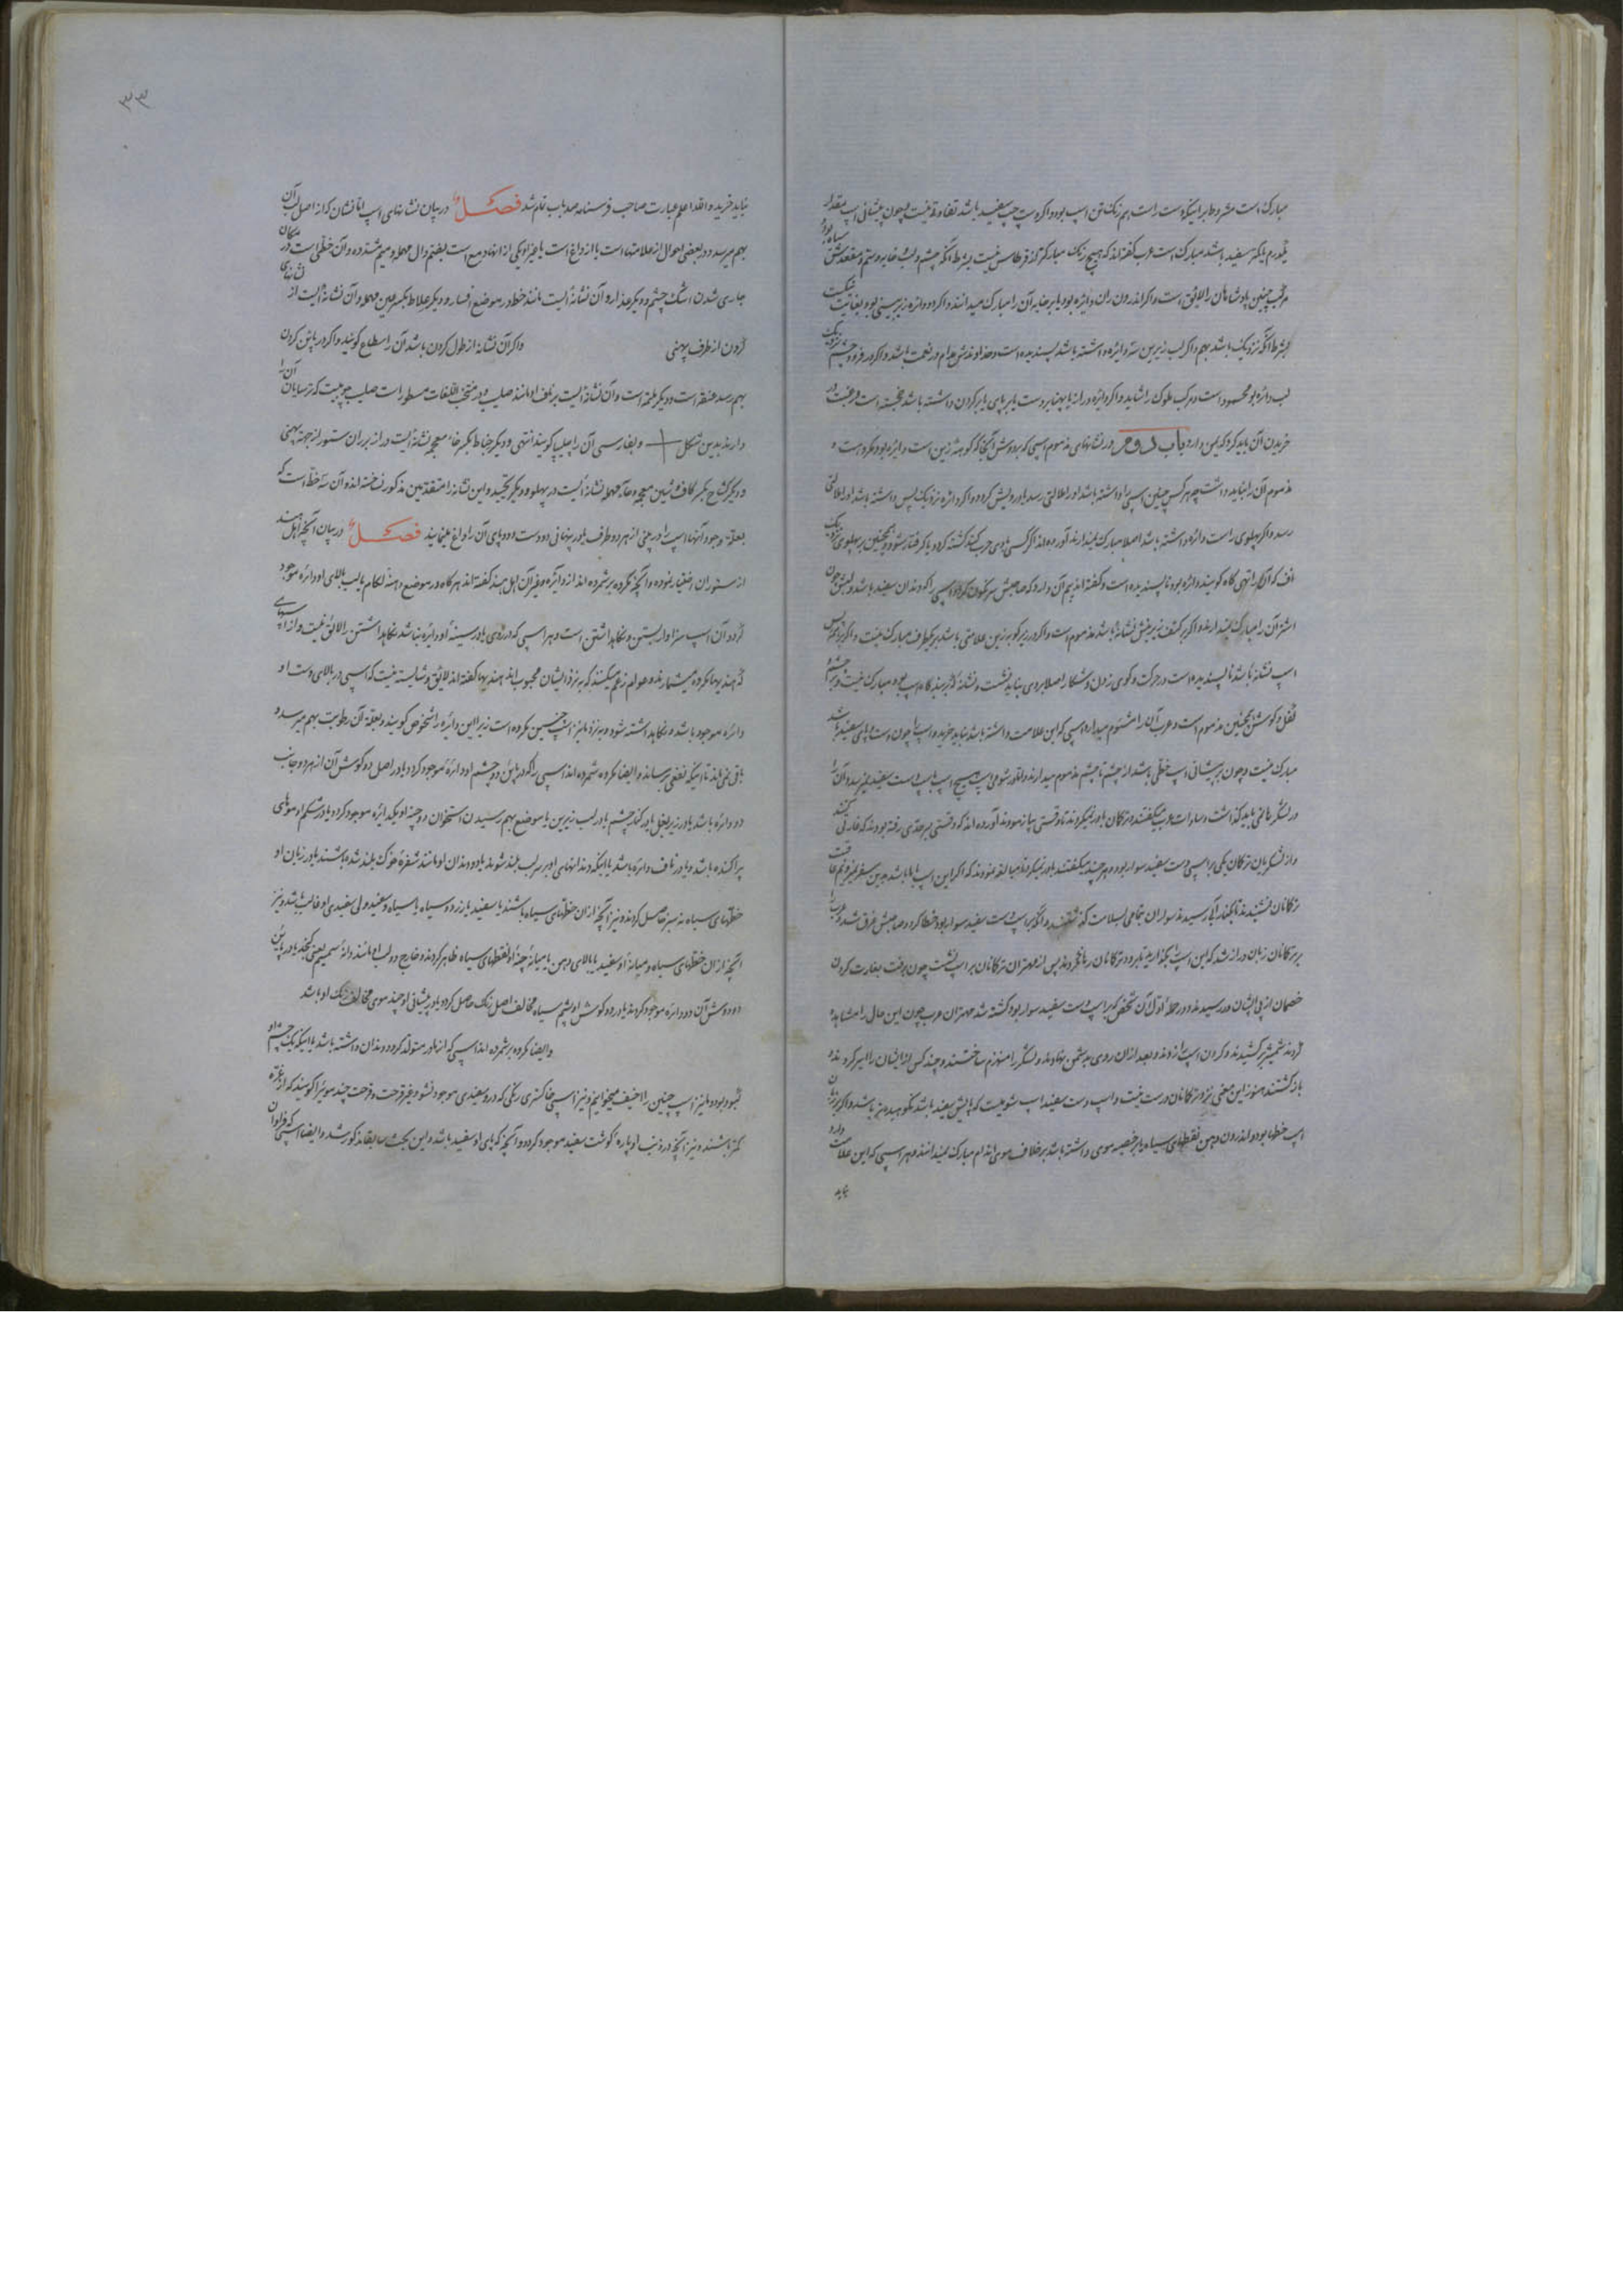 مبارک است بشرط برانیکه دست راست همرنگ تن اسپ بود و اگر دست چپ سفید باشد تفاوتی نیست و چون پیشانی اسپ مقدار
درم یا بیشتر سفید باشد مبارک است عرب گفته اند که هیچ رنگ مبارکتر از قرطاسی نیست بشرط آنکه چشم و لب و خایه و سم و مقعدش سیاه بود
مرکب چنین پادشاهان را لایق است و اگر اندرون ران دایره بود یا بر خایه آن را مبارک میدانند و اگر دو دایره زیر بینی بود بغایت نیکست
بشرط آنکه نزدیک باشد بهم و اگر لب زیرین سه دایره داشته باشد پسندیده است و خداوندش مدام در نعمت باشد و اگر در فرود چشم نزدیک
لب دائره بود محمود است و مرکب ملوک را شاید و اگر دایره دراز یا پهنا بر دست یا بر پای یا بر گردن داشته باشد خجسته است و رغبت در
خریدن آن باید کرد که یمن دارد باب دوم در نشانهای مذموم اسپی که بر دوش آنجا که گوشه زین است دایره بود مکروه است و
مذموم آن را نباید داشت چه هر کس چنین اسپی را داشته باشد او را علتی رسد یا درویش گردد و اگر دایره نزدیک پس داشته باشد او را علتی
رسد و اگر پهلوی راست دائره داشته باشد اصلا مبارک نمیدارند آورده اند اگر کسی با وی حرب کند کشته گردد یا گرفتار شود و همچنین بر پهلوی نزدیک
ناف که آن را تهی گاه گویند دائره بود ناپسندیده است و گفته اند بیم آن دارد که صاحبش سرنگون گردد و اسپی را که دندان سفید باشد و لبش چون
اشتر آن را مبارک نمیدارند و اگر بر کتف زیر یالش نشانه باشد مذموم است و اگر در زیر گلو به زیرین علامتی باشد بر یکطرف مبارک نیست و اگر بر سر
اسپ نشانه باشد ناپسندیده است در حرکت و گوی زدن و شکار اصلا بر وی نباید نشست و نشانه که بر بینی گاه اسپ بود مبارک نیست و بر چشم
کفل و گوشش همچنین مذموم است و عرب آن را مشئوم میدارد اسپی که این علامت داشته باشد نباید خرید و اسپ را چون دست و پای سفید باشد
مبارک نیست و چون بر پیشانی اسپ خطی باشد از چشم تا چشم مذموم میدارند و آنقدر شومی اسپ هیچ اسپ باسپ دست سفید نمیرسد و آن را
در لشکر گاهی نباید گذاشت و سادات عرب میگفتند و ترکان باور نمیکردند تا وقتی بیازمودند آورده اند که وقتی بسرحدی رفته بودند که غارتی کنند
و از لشکریان ترکان یکی بر اسپی دست سفید سوار بود و هر چند میگفتند باور نمیکردند مبالغه نمودند که اگر این اسپ با ما باشد بدین سفر نمیرویم عاقبت
ترکانان نشنیدند تا بکنار آبی رسیدند سواران تمامی بسلامت گذشتند و آنکه بر اسپ دست سفید سوار بود خطا کرد و صاحبش غرق شد و عرب را
بر ترکانان زبان دراز شد که این اسپ بگذارید تا برود ترکانان رها نکردند پس از مهتران ترکانان بر اسپ نشست چون برفت بغارت کردن
خصمان از پی ایشان در رسیدند و در حمله اول آن شخص که بر اسپ دست سفید سوار بود کشته شد مهتران عرب چون این حال را مشاهده
کردند شمشیر برکشیدند و گردن اسپ را زدند و بعد ازان روی بدشمن نهادند و لشکر را منهزم ساختند و چند کس از ایشان را اسیر کردند
باز گشتند هنوز این معنی نزد ترکانان درست نیست و اسپ دست سفید اسپ شومیست که پایش سفید باشد نکوهیده نیز باشد و اگر بر زبان
اسپ خطها بود و اندرون دهن نقطهای سیاه یا بر خصیه موی داشته باشد بر خلاف موی اندام مبارک نمیدانند و هر اسپی که این علامت دارد
نباید
۳۳
نباید خرید و الله اعلم عبارت صاحب فرسنامه صد باب تمام شد فصل در بیان نشانهای اسپ اما نشان که از اصل آن
بهم میرسد و در بعضی احوال از علامتها است یا از داغ است یا غیر او یکی از آنها دمع است بفتح دال مهمله و میم مشدده و آن خطی است در مکان
جاری شدن اشک چشم و دیگر عذار و آن نشانه ایست مانند خط در موضع افسار و دیگر علاط بکسر عین مهمله و آن نشانه ایست از
گردن از طرف پهنی و اگر آن نشانه از طول گردن باشد آن را سطاع گویند و اگر در پائین گردن
بهم رسد صنقر است و دیگر ملتمه است و آن نشانه ایست بر زلف او مانند صلیب و در منتخب اللغات مسطور است صلیب چوبیست که ترسایان آن را
دارند بدین شکل و بفارسی آن را چلیپا گویند انتهی و دیگر خباط بکسر خاء معجمه نشانه ایست دراز بر ران ستور از جهه پهنی
و دیگر کشاح بکسر کاف و شین معجمه و حاء مهمله نشانه ایست در پهلو و دیگر تحبید و این نشانه را متقدمین مذکور نساخته اند و آن سه خط است که
بعلة وجود آنها اسپ را در چینی از هر دو طرف یا در پنهانی دو دست و دو پای آن را داغ مینمایند فصل در بیان آنچه اهل هند
از ستوران اختیار نموده و آنچه مکروه بر شمرده اند از دایره و غیر آن اهل هند گفته اند هر گاه در موضع دهنه لکام یا لب بالای او دائره موجود
گردد آن اسپ سزاوار بستن و نگاهداشتن است و هر اسپی که در روی یا در سینه او دائره نباشد نگاهداشتن را لائق نیست و از اسپهای
که هندیها مکروه میشمارند و عوام زعم میکنند که بر نزد ایشان محبوب اند هندیها گفته اند لائق و شایسته نیست که اسپی در بالای دست او
دائره موجود باشد و نگاهداشته شود و نزد ما نیز اسپ چنین مکروه است زیرا این دائره را شخوص گویند و بعلة آن رطوبت بهم میرسد و
باقی نمی ماند تا اینکه نفعی برساند و ایضا مکروه شمرده اند اسپی را که در پائین دو چشم او دائره موجود گردد یا در اصل دو گوش آن از هر دو جانب
دو دائره باشد یا در زیر بغل یا در کنار چشم یا در لب زیرین یا موضع بهم رسیدن استخوان دو چنه او یکدایره موجود گردد یا در شکم او موهای
پراکنده باشد و یا در ناف دائره باشد یا اینکه دندانهای او بر سر لب بلند شوند یا دو دندان او مانند شفره خوک بلند شده باشند یا در زبان او
خطهای سیاه نه سبز حاصل گردند و نیز آنچه ازان خطهای سیاه باشند یا سفید یا زرد و سیاه یا سیاه و سفید ولی سفیدی او غالب باشد و نیز
آنچه ازان خطهای سیاه و میانه او سفید یا بالای دهن یا میانه چنه او نقطهای سیاه ظاهر گردند و خارج دو لب او مانند دانه سمسم یعنی کنجد یا در پائین
دو دوش آن دو دائره موجود گردند یا در دو گوش او پشم سیاه مخالف اصل رنگ حاصل گردد یا در پیشانی او چند موی مخالف رنگ او باشد
و ایضا مکروه بر شمرده اند اسپی که از مادر متولد گردد و دندان داشته باشد یا اینکه یک چشم او
کبود بود و ما نیز اسپ چنین را اخیف میخوانیم و نیز اسپی خاکستری رنگی که در و سفیدی موجود نشود و غیر قرحت و قرحت چند مو را گویند که از غره
کمتر باشند و نیز آنچه در ذنب او پاره گوشت سفید موجود گردد و آنچه که پای او سفید باشد و این بحث سابقا مذکور شد و ایضا اسپی که فراوان